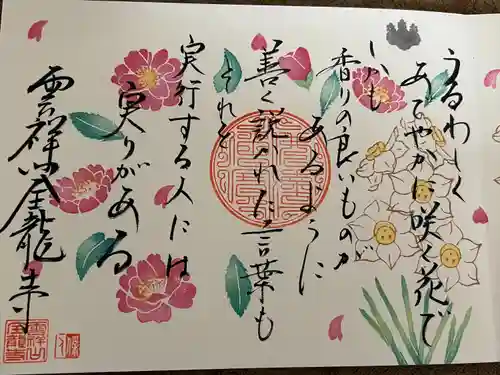 うるわしく
あでやかに咲く花で
しかも
香りの良いものが
あるように
善く説かれた言葉も
それを
実行する人には
実りがある
雲祥山全龍寺